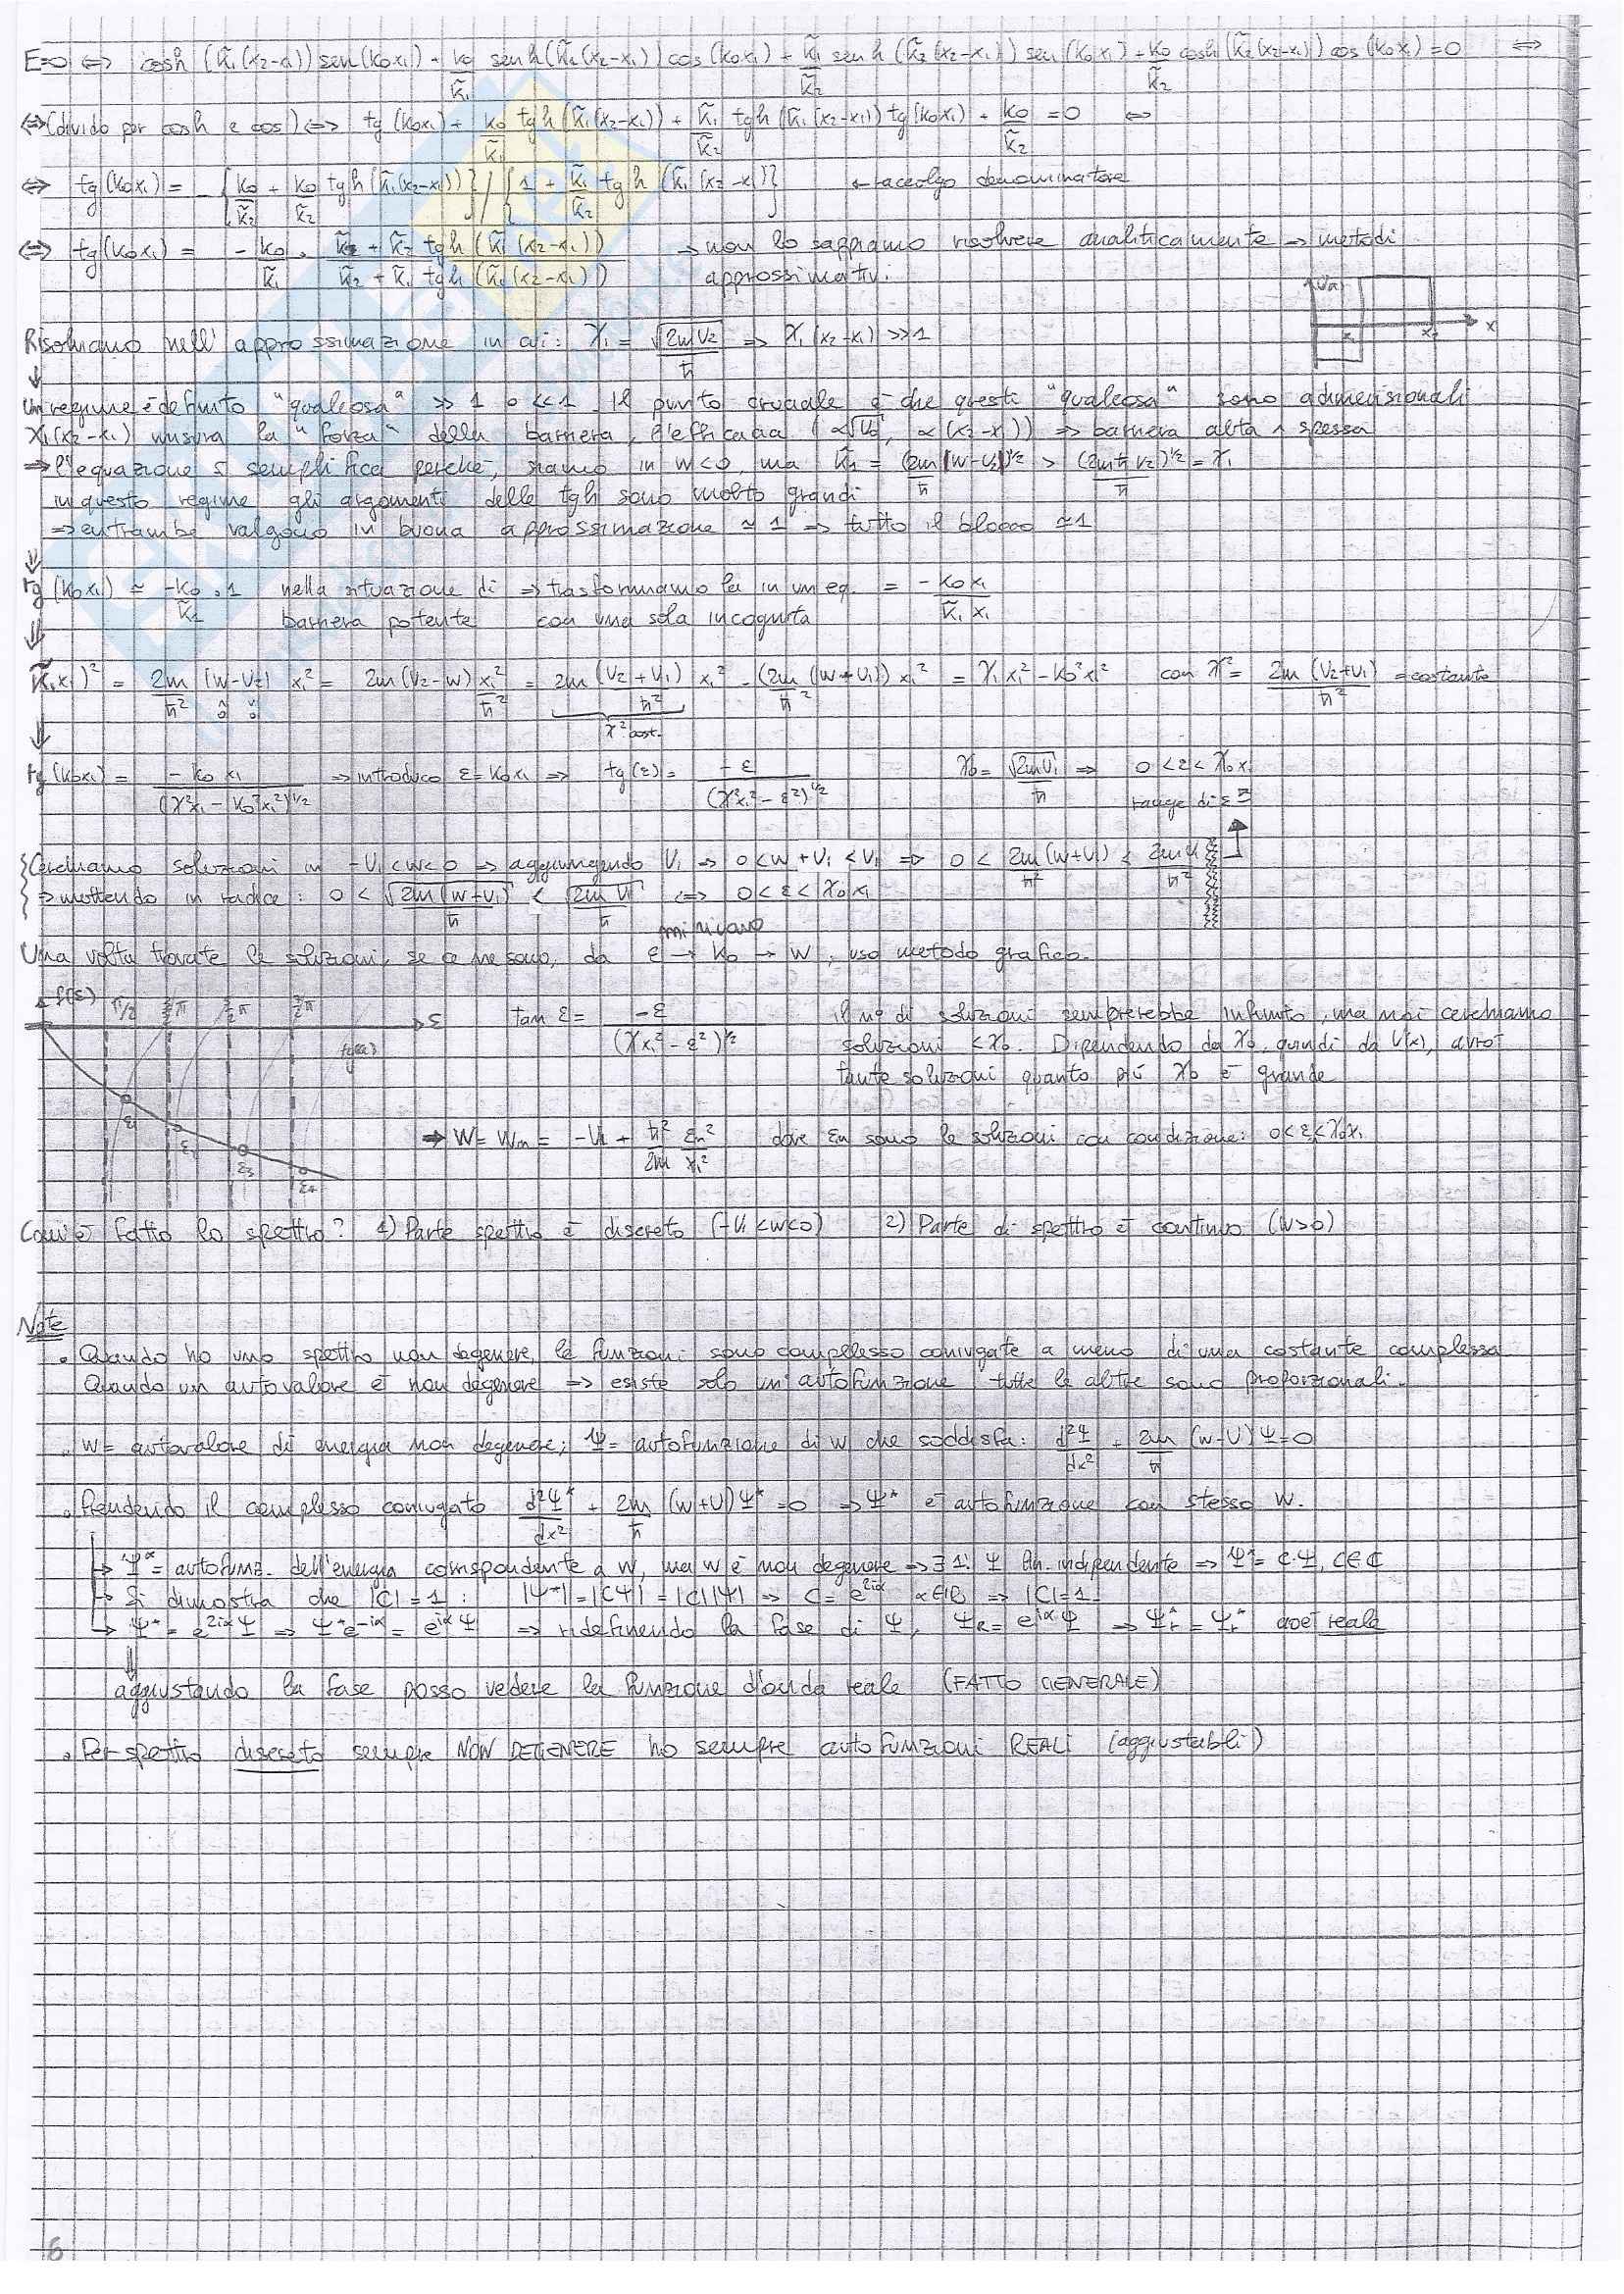 E=0 ⇔ cosh (k̃₁(x₂-x₁)) sen(k₀x₁) + k₀/k̃₁ senh(k̃₁(x₂-x₁)) cos(k₀x₁) + k̃₁/k̃₂ senh(k̃₁(x₂-x₁)) sen(k₀x₁) + k₀/k̃₂ cosh(k̃₁(x₂-x₁)) cos(k₀x₁) = 0 ⇔
⇔ (divido per cosh e cos) ⇔ tg(k₀x₁) + k₀/k̃₁ tgh(k̃₁(x₂-x₁)) + k̃₁/k̃₂ tgh(k̃₁(x₂-x₁)) tg(k₀x₁) + k₀/k̃₂ = 0 ⇔
⇔ tg(k₀x₁) = -{k₀/k̃₂ + k₀/k̃₂ tgh(k̃₁(x₂-x₁))} / {1 + k̃₁/k̃₂ tgh(k̃₁(x₂-x₁))} ← raccolgo denominatore
⇔ tg(k₀x₁) = -k₀/k̃₁ · (k̃₁ + k̃₂ tgh(k̃₁(x₂-x₁)))/(k̃₂ + k̃₁ tgh(k̃₁(x₂-x₁))) → non lo sappiamo risolvere analiticamente → metodi
approssimativi.
x₁ x₂ x
Risolviamo nell'approssimazione in cui: χ₁ = √(2mV₂)/ħ ⇒ χ₁(x₂-x₁) >> 1
Un regime è definito "qualcosa" >> 1 o << 1. Il punto cruciale è che questi "qualcosa" sono adimensionali
χ₁(x₂-x₁) misura la "forza" della barriera, l'efficacia (∝√V₀, ∝(x₂-x₁)) ⇒ barriera alta e spessa
⇒ l'equazione si semplifica perché, siamo in w<0, ma k̃₁ = (2m|w-V₂|)^1/2/ħ > (2mV₂)^1/2/ħ = χ₁
in questo regime gli argomenti delle tgh sono molto grandi
⇒ entrambe valgono in buona approssimazione ≃ 1 ⇒ tutto il blocco ≃ 1
tg(k₀x₁) ≃ -k₀/k̃₁ · 1 nella situazione di ⇒ trasformiamola in un eq. = -k₀x₁/(k̃₁x₁)
barriera potente con una sola incognita
(k̃₁x₁)² = 2m/ħ² (w-V₂) x₁² = 2m(V₂-w) x₁²/ħ² = 2m(V₂+V₁)/ħ² x₁² - (2m(w+V₁))/ħ² x₁² = χ₁x₁² - k₀²x₁² con χ² = 2m(V₂+V₁)/ħ² = costante
χ² cost.
tg(k₀x₁) = -k₀x₁/(χ²x₁ - k₀²x₁²)^1/2 ⇒ introduco ε = k₀x₁ ⇒ tg(ε) = -ε/(χ²x₁² - ε²)^1/2 χ₀ = √(2mV₁)/ħ ⇒ 0<ε<χ₀x₁
range di ε
Cerchiamo soluzioni in -V₁<w<0 ⇒ aggiungendo V₁ ⇒ 0<w+V₁<V₁ ⇒ 0 < 2m(w+V₁)/ħ² < 2mV₁/ħ²
⇒ mettendo in radice: 0 < √(2m(w+V₁))/ħ < √(2mV₁)/ħ ⇔ 0<ε<χ₀x₁
mi ricavo
Una volta trovate le soluzioni, se ce ne sono, da ε → k₀ → w, uso metodo grafico.
f(ε) π/2 ε tg(ε) ε₁ ε₂ ε₃ ε₄
tan ε = -ε/(χx₁² - ε²)^1/2 il n° di soluzioni sembrerebbe infinito, ma noi cerchiamo
soluzioni < χ₀. Dipendendo da χ₀, quindi da V(x), avrò
tante soluzioni quanto più χ₀ è grande
⇒ W = Wₙ = -V₁ + ħ²/2m εₙ²/x₁² dove εₙ sono le soluzioni con condizione: 0<ε<χ₀x₁
Com'è fatto lo spettro? 1) Parte spettro è discreto (-V₁<w<0) 2) Parte di spettro è continuo (w>0)
Note
• Quando ho uno spettro non degenere, le funzioni sono complesso coniugate a meno di una costante complessa
Quando un autovalore è non degenere ⇒ esiste solo un'autofunzione tutte le altre sono proporzionali.
• w = autovalore di energia non degenere; Ψ = autofunzione di w che soddisfa: d²Ψ/dx² + 2m/ħ (w-U)Ψ = 0
• Prendendo il complesso coniugato d²Ψ*/dx² + 2m/ħ (w+U)Ψ* = 0 ⇒ Ψ* è autofunzione con stesso w.
↳ Ψ* = autofunz. dell'energia corrispondente a w, ma w è non degenere ⇒ ∃ 1! Ψ lin. indipendente ⇒ Ψ* = c·Ψ, c∈ℂ
↳ Si dimostra che |C|=1: |Ψ*| = |CΨ| = |C||Ψ| ⇒ C = e^2iα α∈ℝ ⇒ |C|=1
↳ Ψ* = e^2iα Ψ ⇒ Ψ* e^-iα = e^iα Ψ ⇒ ridefinendo la fase di Ψ, Ψ_R = e^iα Ψ ⇒ Ψ_r* = Ψ_r* cioè reale
aggiustando la fase posso vedere la funzione d'onda reale (FATTO GENERALE)
• Per spettro discreto sempre NON DEGENERE ho sempre autofunzioni REALI (aggiustabili)
6